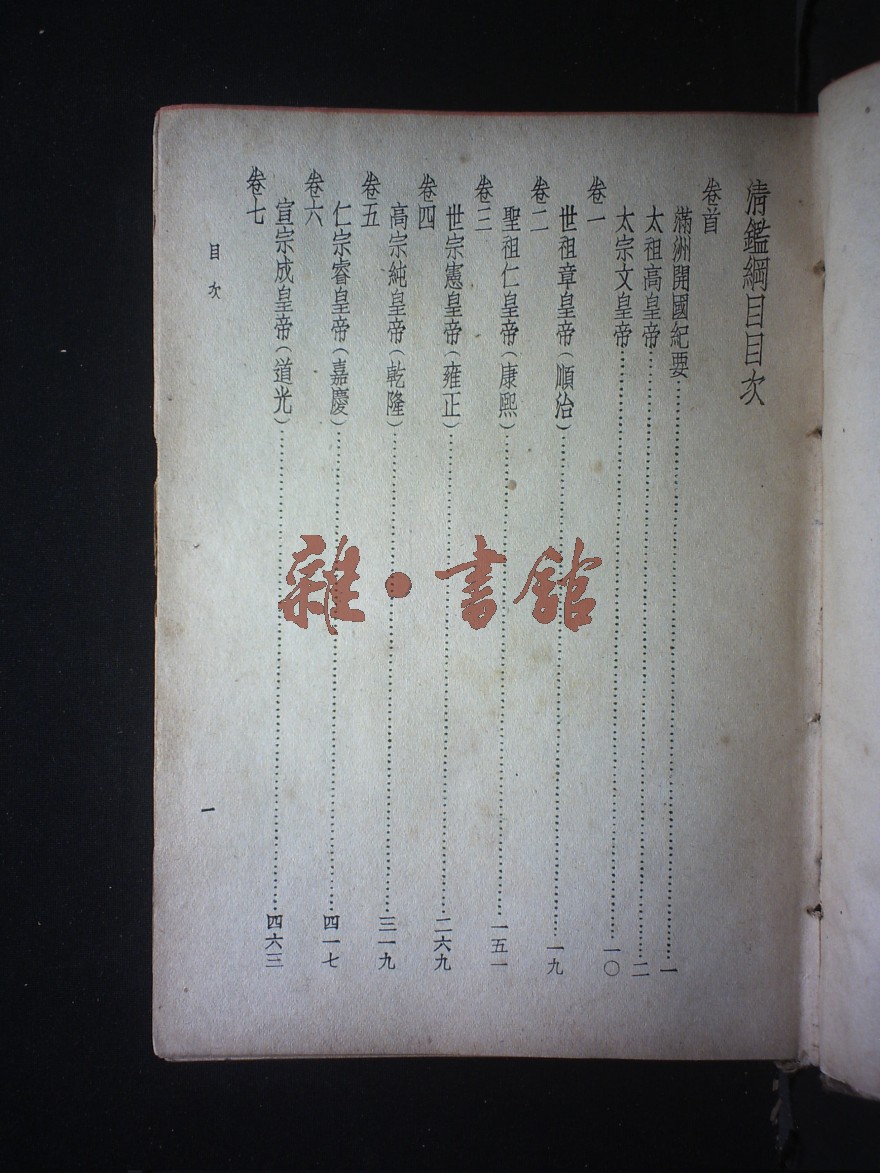 清鑑綱目目次
卷首
滿洲開國紀要……一
太祖高皇帝……二
太宗文皇帝……一〇
卷一
世祖章皇帝（順治）……一九
卷二
聖祖仁皇帝（康熙）……一五一
卷三
世宗憲皇帝（雍正）……二六九
卷四
高宗純皇帝（乾隆）……三一九
卷五
仁宗睿皇帝（嘉慶）……四一七
卷六
宣宗成皇帝（道光）……四六三
卷七
目次
一
雜·書館